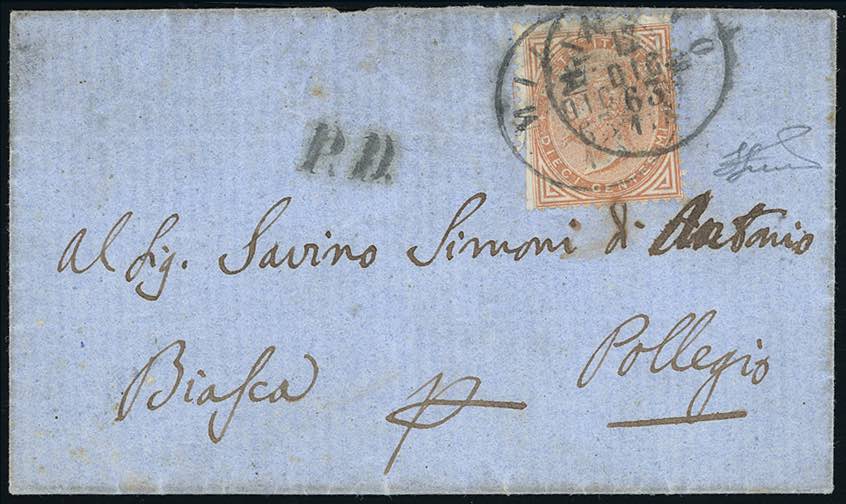 MILANO
DIC 63
P.D.
DIECI CENTESIMI
Al Sig. Savino Simoni di Antonio
Biasca p Pollegio